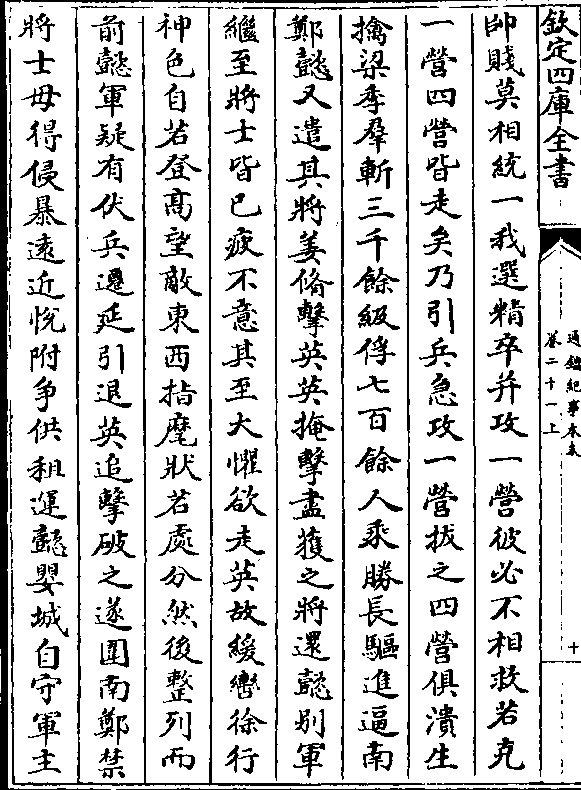 欽定四庫全書
通鑑紀事本末
卷二十一上
十
帥賤莫相統一我選精卒并攻一營彼必不相救若克
一營四營皆走矣乃引兵急攻一營拔之四營俱潰生
擒梁季羣斬三千餘級俘七百餘人乘勝長驅進逼南
鄭懿又遣其將姜脩擊英英掩擊盡獲之將還懿别軍
繼至將士皆已疲不意其至大懼欲走英故緩轡徐行
神色自若登髙望敵東西指麾狀若處分然後整列而
前懿軍疑有伏兵遷延引退英追擊破之遂圍南鄭禁
將士毋得侵暴遠近悅附争供租運懿嬰城自守軍主